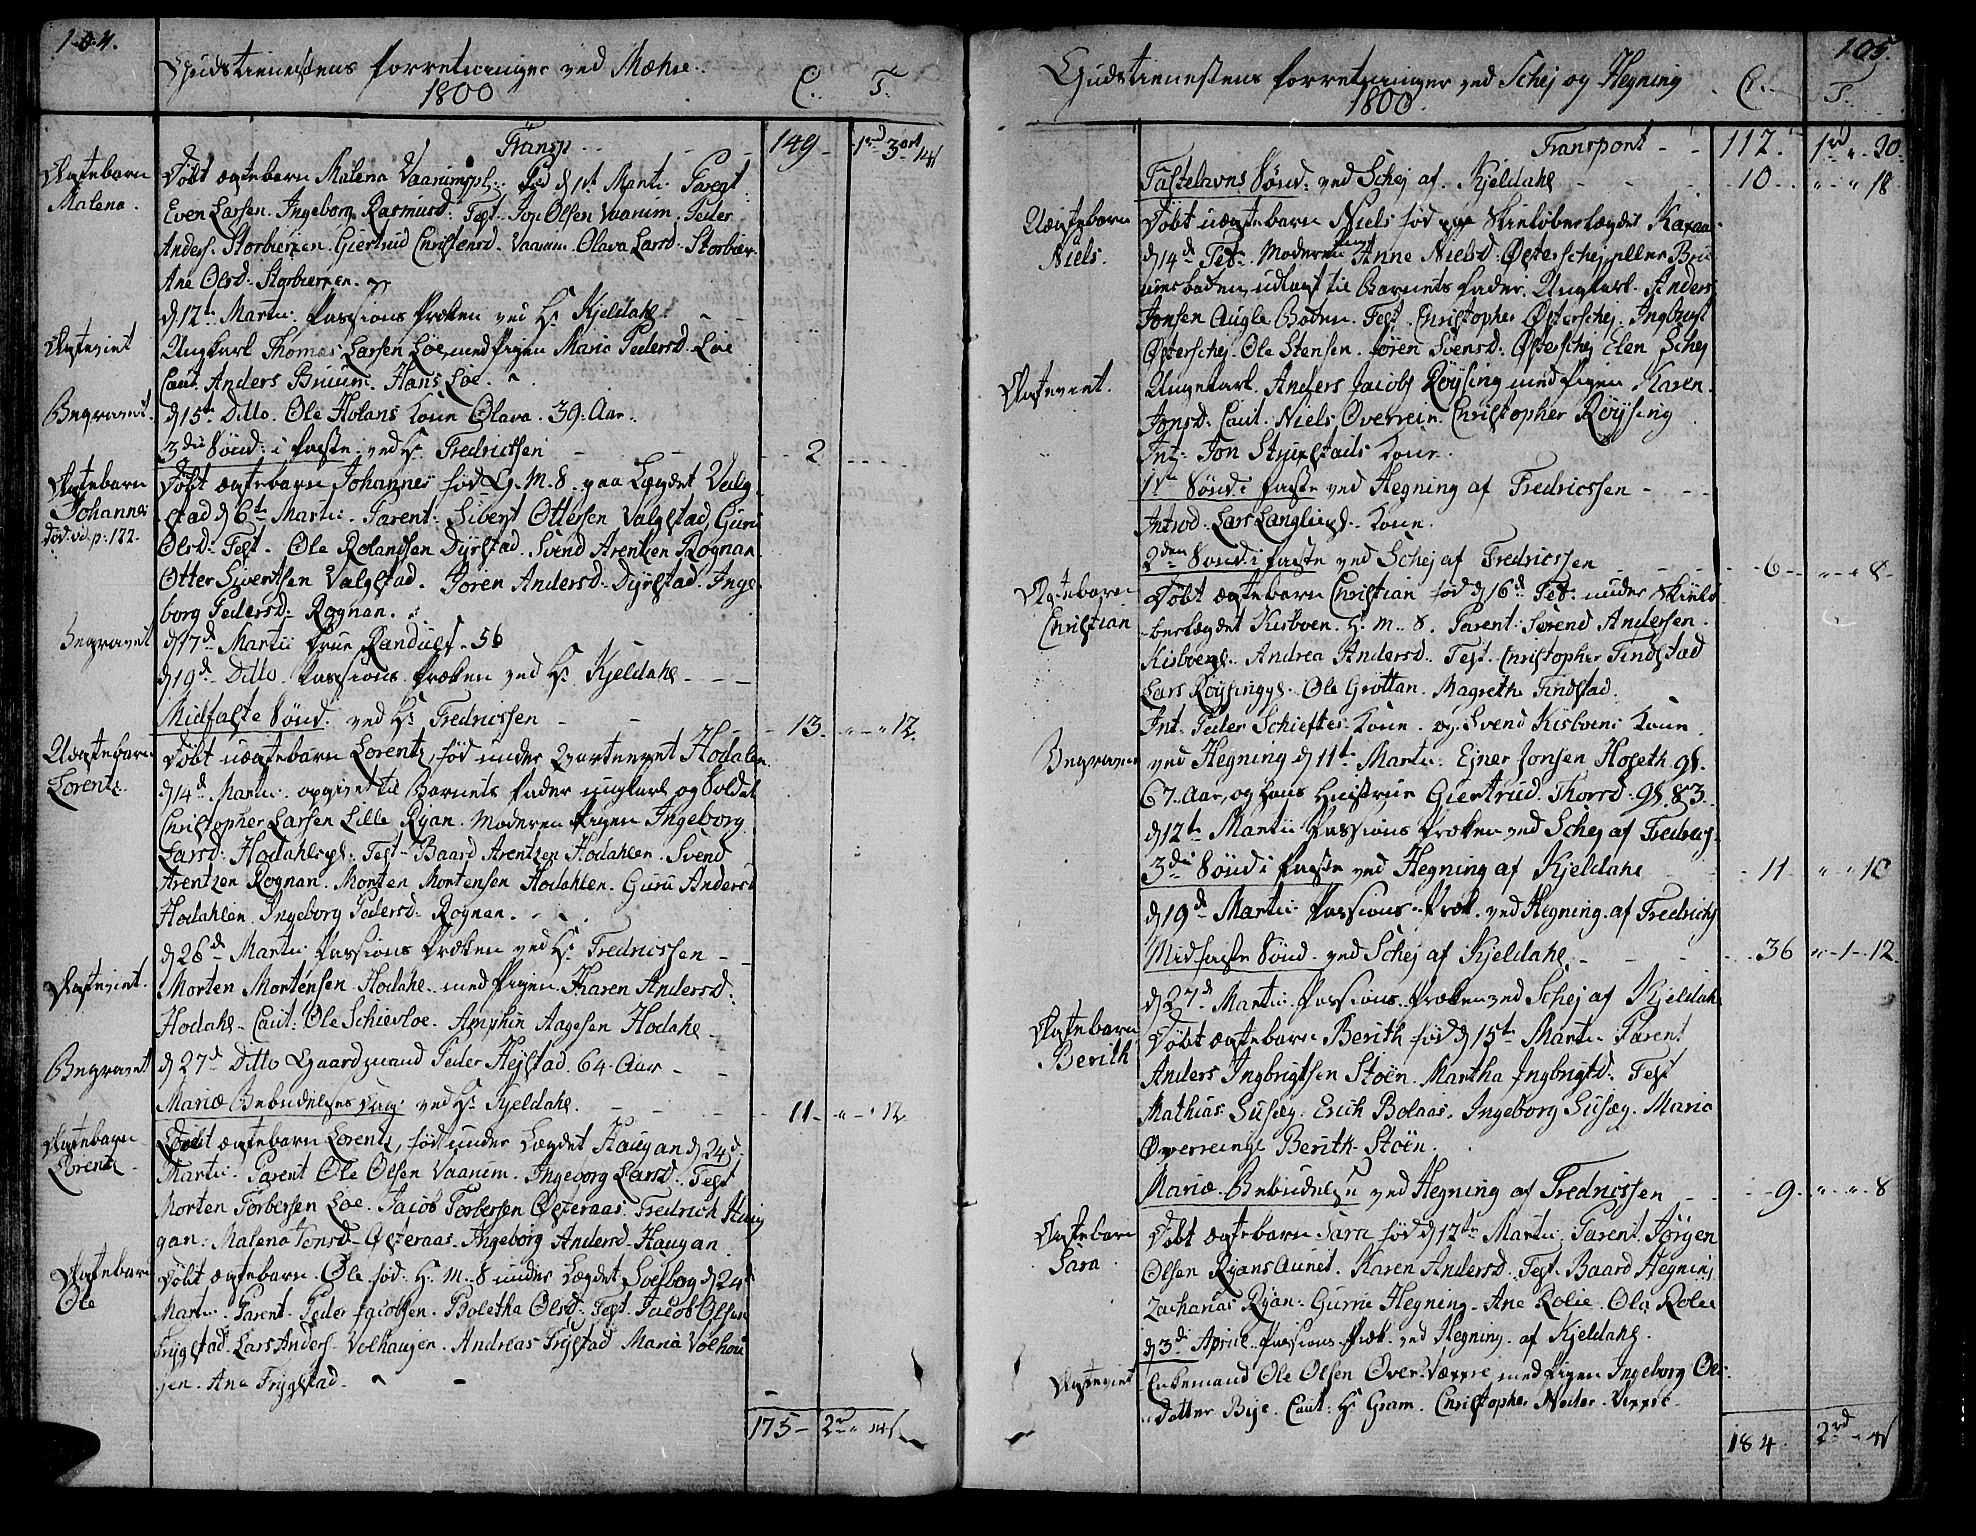 104.
Gudstienestens forretninger ved Mæhre.
1800
C. T.
Transp. 149 - 1rd 3ort 14s
Ægtebarn
Malena.
Døbt ægtebarn Malena Vaarumspl: fød d 1st Marti. Parent
Even Larsen. Ingeborg Rasmusd: Test. Jon Olsen Vaarum. Peder
Anders. Storbierken. Giertrud Christensd. Vaarum. Olava Larsd. Storbier.
Ane Olsd. Storbierken.
d 12te Martii. Passions Præken ved Hr Kjeldahl.
Ægteviet
Ungkarl Thomas Larsen Loe med Pigen Maria Pedersd. Loe
Caut. Anders Bruum. Hans Loe.
Begravet.
d 15de Ditto. Ole Holans Kone Olava. 39. Aar.
3die Sønd: i faste ved Hr Fredricssen 2
Ægtebarn
Johannes
død vid. p: 122.
Døbt ægtebarn Johannes fød G. M. S. paa Lægdet Valg-
stad d 6te Marti. Parent: Sivert Ottersen Valgstad, Guru
Olsd: Test. Ole Rolandsen Dyrstad. Svend Arentzen Rognan.
Otter Sivertsen Valgstad. Joren Andersd. Dyrstad. Inge-
borg Pedersd. Rognan.
Begravet
d 17d Martii Enke Randi 56
d 19d Ditto Passions Præken ved Hr Kjeldahl
Midfaste Sønd. ved Hr Fredricssen 13. " - " 12.
Uægtebarn
Lorentz.
Døbt uægtebarn Lorentz, fød under Qvarteret Hodalen
d 14d Marti. opgivet til Barnets fader ungkarl og Soldat
Christopher Larsen Lille Ryan. Moderen Pigen Ingeborg
Larsd. Hodahlspl: Test. Baard Arentzen Hodahlen. Svend
Arentzen Rognan. Morten Mortensen Hodahlen. Guru Andersd
Hodahlen. Ingeborg Pedersd. Rognan.
d 26d Marti. Passions Præken ved Hr Fredricssen
Ægteviet.
Morten Mortensen Hodahl. med Pigen Karen Andersd:
Hodahl. Caut: Ole Schievloe. Amphin Aagesen Hodahl
Begravet
d 27d Ditto Gaardmand Peder Hejstad. 64. Aar
Mariæ Bebudelses Dag: ved Hr Kjeldahl. 11 " - " 12
Ægtebarn
Lorentz
Døbt ægtebarn Lorentz, fød under Lægdet Haugan d 24d
Marti. Parent Ole Olsen Vaarum. Ingeborg Larsd: Test
Morten Torbersen Loe. Jacob Torbersen Østeraas. Fredrich Hau
gan. Malena Jonsd. Østeraas. Ingeborg Andersd. Haugan.
Ægtebarn
Ole
Døbt ægtebarn Ole fød H. M. S under Lægdet Solsborg d 24d
Marti. Parent. Peder Jacobsen. Boletha Olsd. Test. Jacob Olsen
Trygstad. Lars Anders. Volhaugen. Andreas Trygstad Maria Volhau
gen. Ane Trygstad.
175 - 2rd " 14s
105.
Gudstienestens forretninger ved Schej og Hegning
1800
C. T.
Transport 112. 1rd " 20.
Fastelavns Sønd: ved Schej af Kjeldahl 10 " " 18
Uægtebarn
Niels.
Døbt uægtebarn Niels fød paa Skieløberlægdet
d 14d Feb. Moderen Anne Nielsd: Østerschej eller
udlagt til Barnets fader. Ungkarl. Anders
Jonsen Augle Boden. Test. Christopher Østerschej. Ingbrigt
Østerschej. Ole Stensen. Joren Svensd. Østerschej Elen Schej
Ægteviet.
Ungekarl. Anders Jacobs Røysing med Pigen Karen
Jonsd. Caut. Niels Overrein. Christopher Røysing
Int: Jon Strugstads Kone.
1ste Sønd i faste ved Hegning af Fredricssen
Introd. Lars Langliepl. Kone.
2den Sønd: i faste ved Schej af Fredricssen 6 " " 8
Ægtebarn
Christian
Døbt ægtebarn Christian fød d 16d Feb. under Skielø
berlægdet Kisboen. H. M. S. Parent: Svend Andersen
Kisboepl. Andrea Andersd. Test. Christopher Findstad
Lars Røysingpl. Ole Grottan. Magrethe Findstad.
Int. Peder Schieftes Kone og Svend Kisboens Kone.
Begravet
ved Hegning d 11te Marti. Ejner Jonsen Hoseth gl.
67. Aar, og hans Hustrue Giertrud Thorsd. gl. 83.
d 12te Marti Passions Præken ved Schej af Fredrics.
3die Sønd i faste ved Hegning af Kjeldahl 11 " " 10
d 19d Marti Passions Præk. ved Hegning af Fredrics
Midfaste Sønd. ved Schej af Kjeldahl 36 " 1 12
d 27d Marti. Passions Præken ved Schej af Kjeldahl
Ægtebarn
Berith
Døbt ægtebarn Berith fød d 15te Marti. Parent
Anders Ingbrigtsen Stoen. Martha Ingbrigtd. Test
Mathias Susæg. Erich Bolaas. Ingeborg Susæg. Maria
Overreinspl Berith Stoen.
Mariæ Bebudelse ved Hegning af Fredricssen 9. " " 8
Ægtebarn
Sara
Døbt ægtebarn Sara fød d 12te Marti. Parent. Jørgen
Olsen Ryansaunet. Karen Andersd. Test. Baard Hegning
Zacharias Ryan. Gurrie Hegning. Ane Rolie. Ola Rolie
d 3di April. Passions Præk. ved Hegning. af Kjeldahl.
Ægteviet
Enkemand Ole Olsen Over-Værre med Pigen Ingeborg Ols:
datter Bye. Caut: Hr Gram. Christopher Neder-Verre.
184. 2rd " 4s